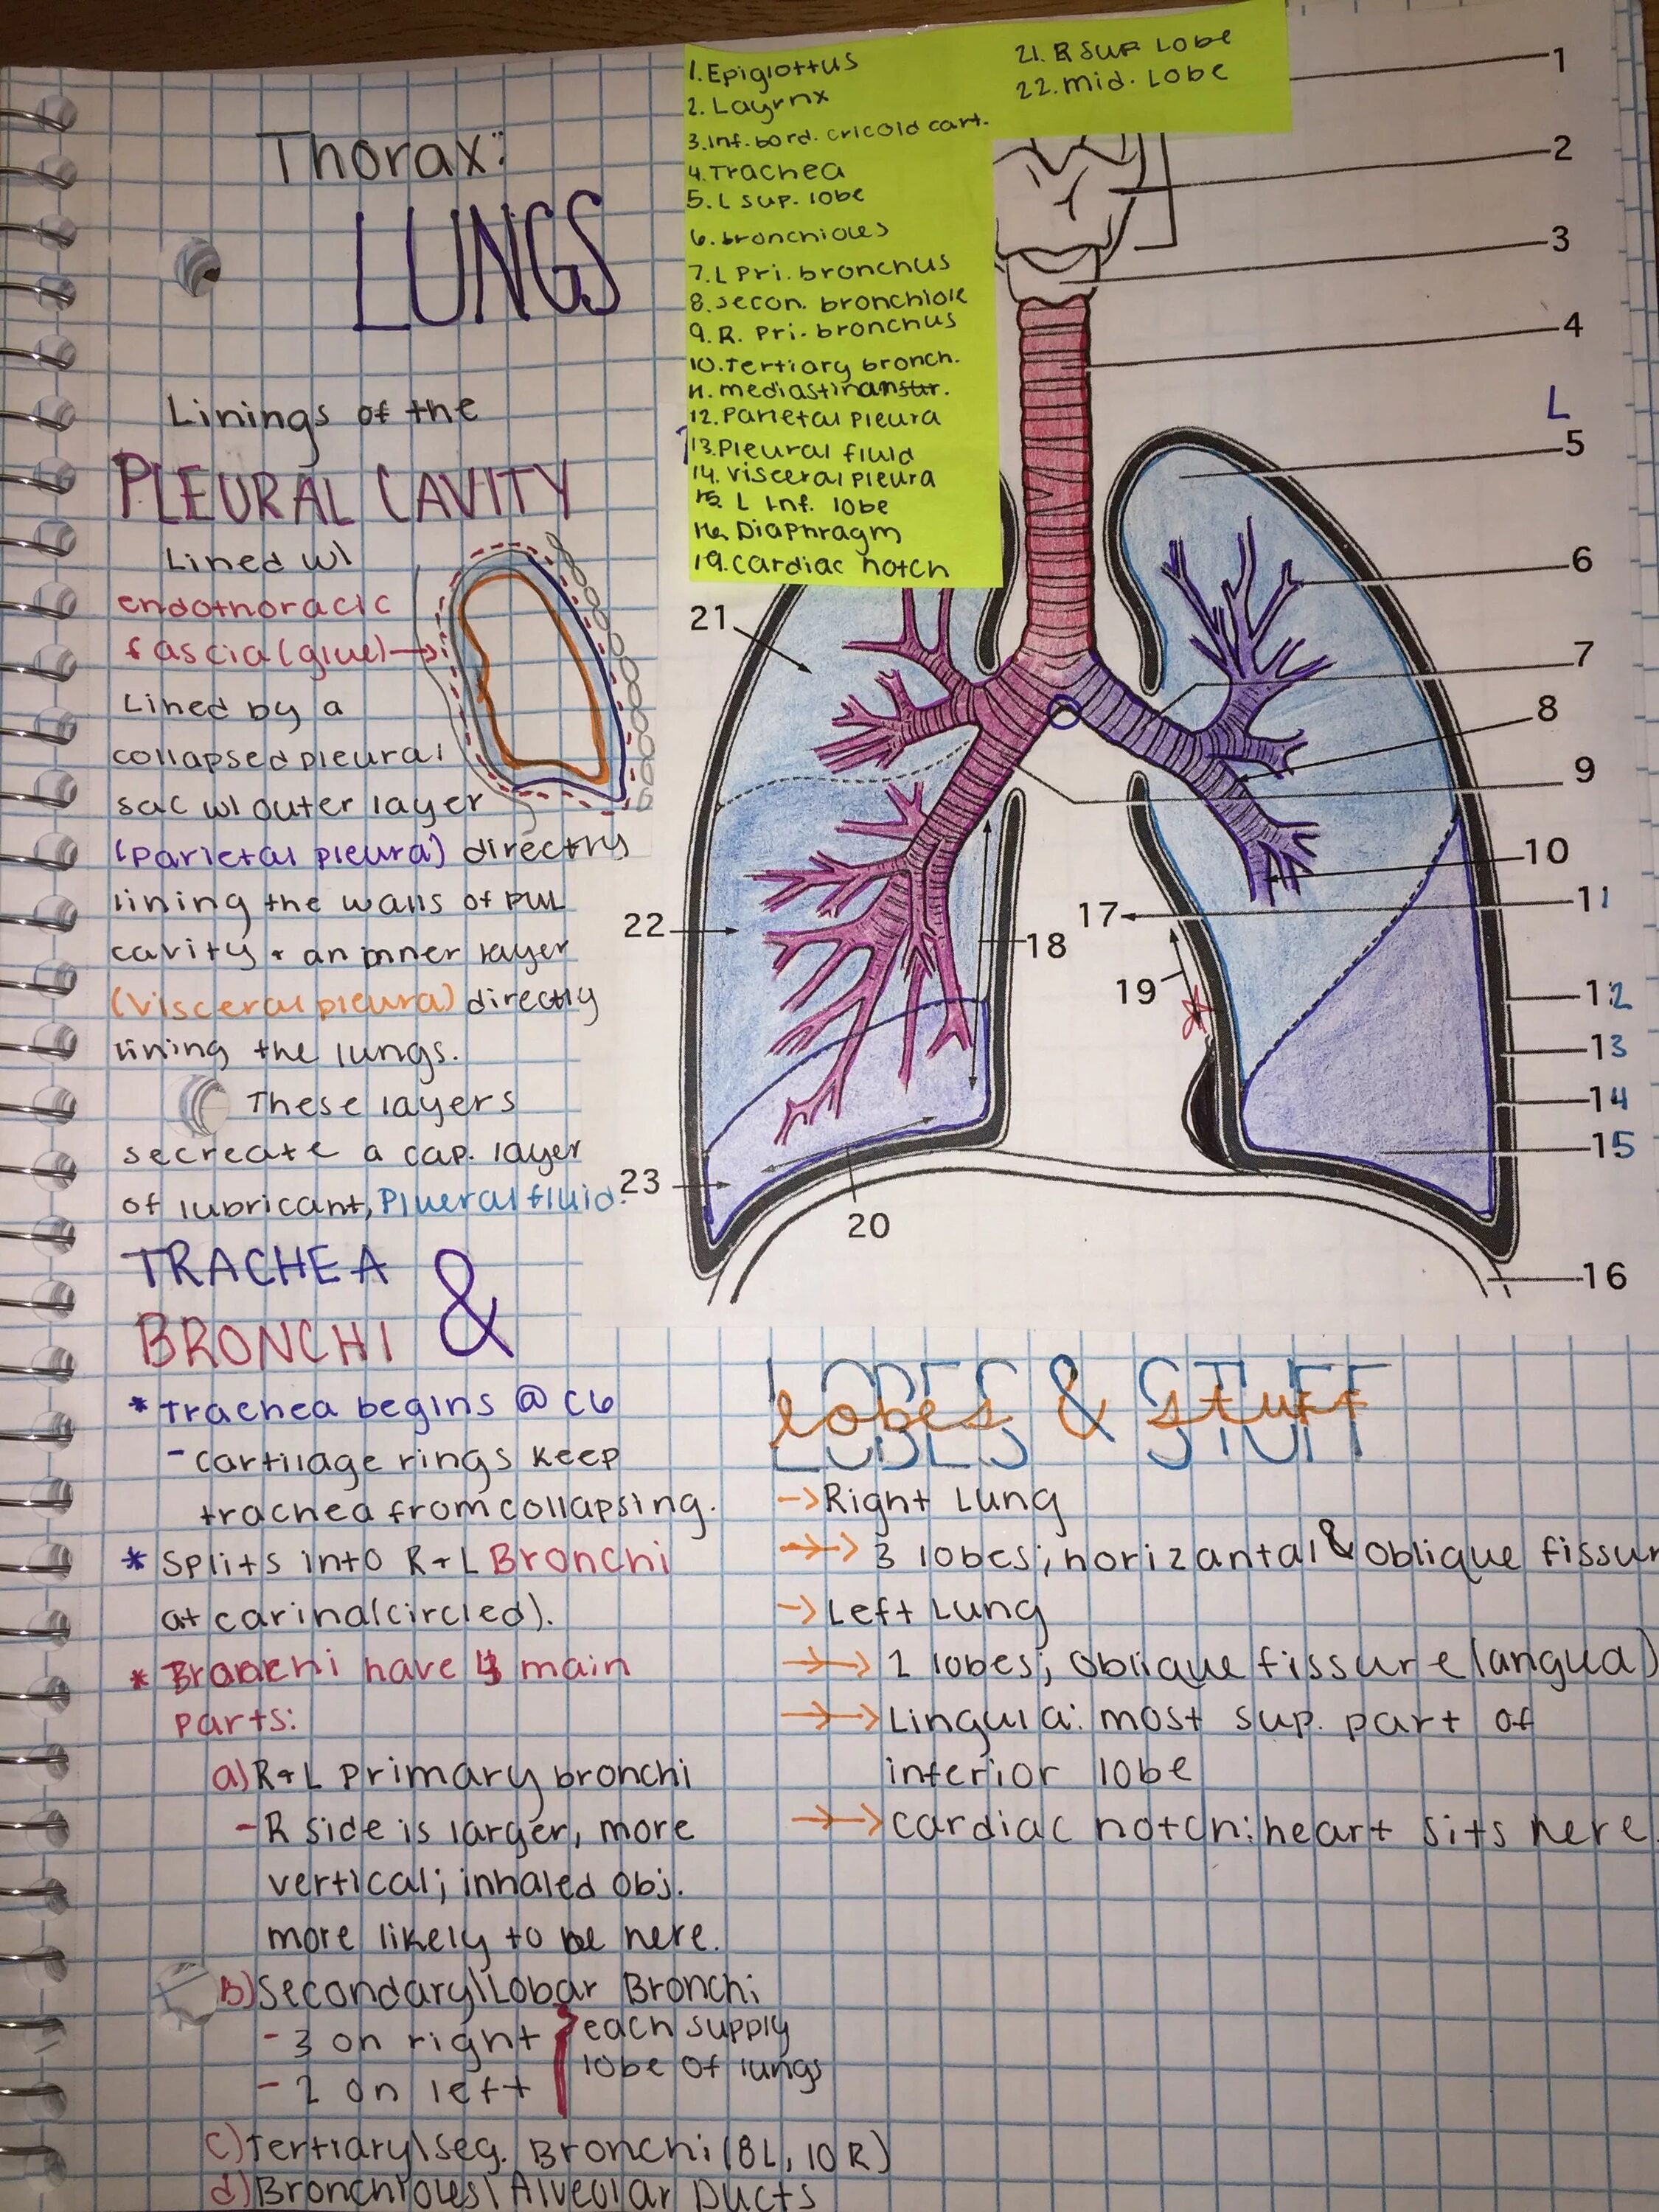 Thorax:
LUNGS
Linings of the
PLEURAL CAVITY
Lined w/
endothoracic
fascia (glue)→
Lined by a
collapsed pleural
sac w/ outer layer
(parietal pleura) directly
lining the walls of pul
cavity + an inner layer
(visceral pleura) directly
lining the lungs.
These layers
secreate a cap. layer
of lubricant, Plueral fluid.
TRACHEA &
BRONCHI
* trachea begins @ C6
- cartilage rings keep
trachea from collapsing.
* Splits into R + L Bronchi
at carina (circled).
* Bronchi have 4 main
parts:
a) R + L primary bronchi
- R side is larger, more
vertical; inhaled obj.
more likely to be here.
B) Secondary\Lobar Bronchi
- 3 on right
- 2 on left
each supply
lobe of lungs
c) Tertiary\seg. Bronchi (8L, 10R)
d) Bronchioles\Alveolar Ducts
1. Epiglottus
2. Layrnx
3. Inf. bord. cricoid cart.
4. Trachea
5. L sup. lobe
6. bronchioles
7. L Pri. bronchus
8. secon. bronchiole
9. R. Pri. bronchus
10. Tertiary bronch.
11. mediastinan str.
12. Parietal pleura
13. Pleural fluid
14. Visceral pleura
15. L Inf. lobe
16. Diaphragm
19. cardiac notch
21. R SUP. Lobe
22. mid. Lobe
1
2
3
4
L
5
6
7
8
9
10
11
12
13
14
15
16
17
18
19
20
21
22
23
LOBES & STUFF
lobes & stuff
→ Right Lung
→→ 3 lobes; horizantal & oblique fissur
→ Left Lung
→→ 2 lobes; oblique fissure (langua)
→→ Lingula: most sup. part of
inferior lobe
→→ cardiac notch: heart sits here